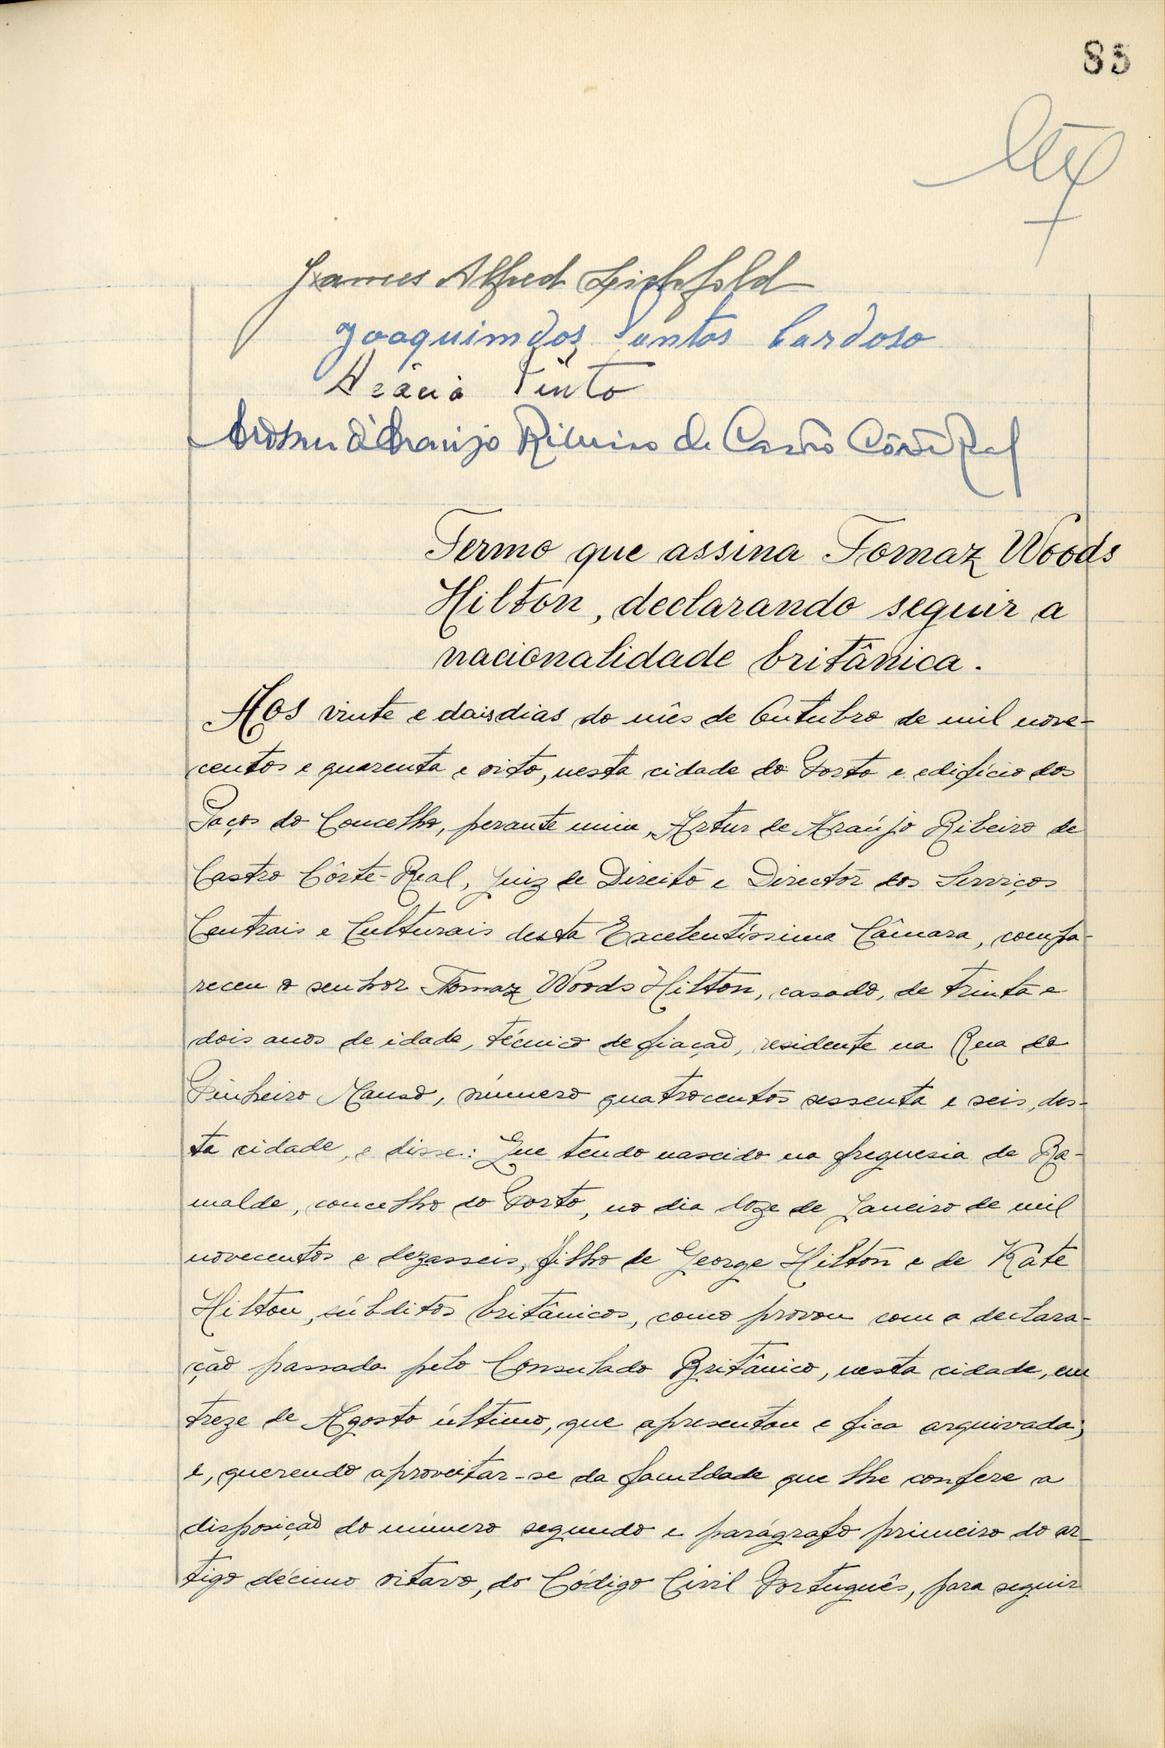 85
James Alfred Lichfold
Joaquim dos Santos Cardoso
Acácio Pinto
Arthur d'Araujo Ribeiro de Castro Côrte Real
Termo que assina Tomaz Woods
Hilton, declarando seguir a
nacionalidade britânica.
Aos vinte e dois dias do mês de Outubro de mil nove-
centos e quarenta e oito, nesta cidade do Porto e edifício dos
Paços do Concelho, perante mim, Artur de Araújo Ribeiro de
Castro Côrte-Real, Juiz de Direito e Director dos Serviços
Centrais e Culturais desta Excelentíssima Câmara, compa-
receu o senhor Tomaz Woods Hilton, casado, de trinta e
dois anos de idade, técnico de fiação, residente na Rua do
Pinheiro Manso, número quatrocentos sessenta e seis, des-
ta cidade, e disse: Que tendo nascido na freguesia de Ra-
malde, concelho do Porto, no dia doze de Janeiro de mil
novecentos e dezasseis, filho de George Hilton e de Kate
Hilton, súbditos britânicos, como provou com a declara-
ção passada pelo Consulado Britânico, nesta cidade, em
treze de Agosto último, que apresentou e fica arquivada;
e, querendo aproveitar-se da faculdade que lhe confere a
disposição do número segundo e parágrafo primeiro do ar-
tigo décimo oitavo, do Código Civil Português, para seguir